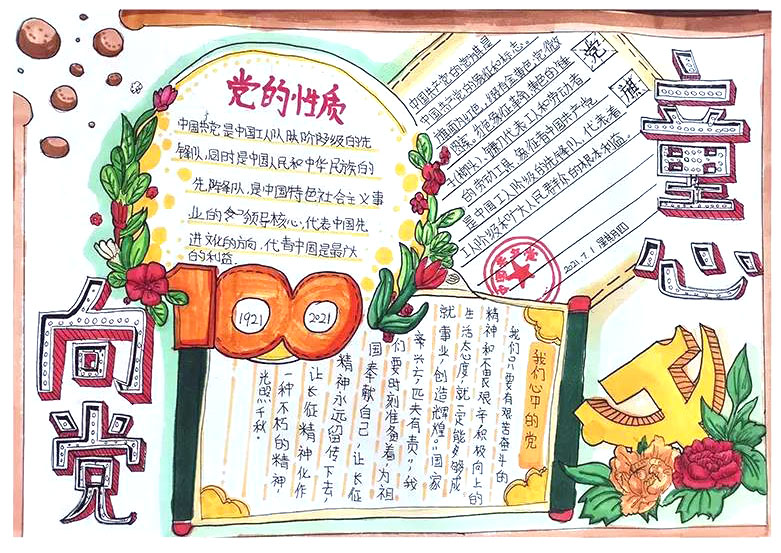 童心
向党
党的性质
中国共党是中国工人队队阶级的先
锋队,同时是中国人民和中华民族的
先阵锋队,是中国特色社会主义事
业的领导核心,代表中国先
进文化的方向,代者中国是最大
的利益
党旗
中国共产党的党旗是
中国共产党的象征和标志。
旗面为红色,上缀有金黄色党徽
图案。红色象征革命,黄色的锤
子(榔头)、镰刀代表工人和劳动者
的劳动工具,象征着中国共产党
是中国工人阶级的先锋队,代表着
工人阶级和广大人民群众的根本利益。
2021.7.1 星期四
100
1921 2021
我们心中的党
我们只要有艰苦奋斗的
精神和不畏艰辛积极向上的
生活态度,就一定能够够成
就事业,创造辉煌。“国家
亲兴亡,匹夫有责”,我
们要时刻准备着,为祖
国奉献自己,让长征
精神永远留传下去,
让长征精神化作
一种不朽的精神,
光照千秋。